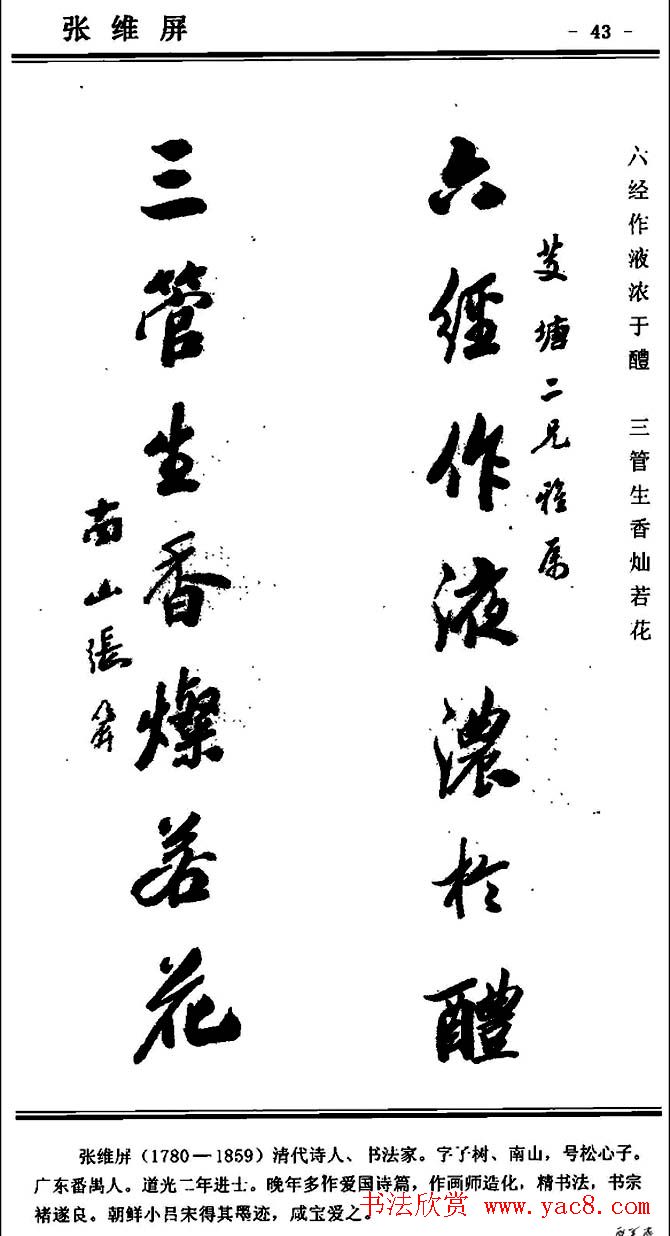 张维屏
- 43 -
六经作液浓于醴 三管生香灿若花
芰塘二兄雅属
六經作液濃於醴
三管生香燦若花
南山張
张维屏（1780—1859）清代诗人、书法家。字子树、南山，号松心子。
广东番禺人。道光二年进士。晚年多作爱国诗篇，作画师造化，精书法，书宗
褚遂良。朝鲜小吕宋得其墨迹，咸宝爱之。
书法欣赏
www.yac8.com